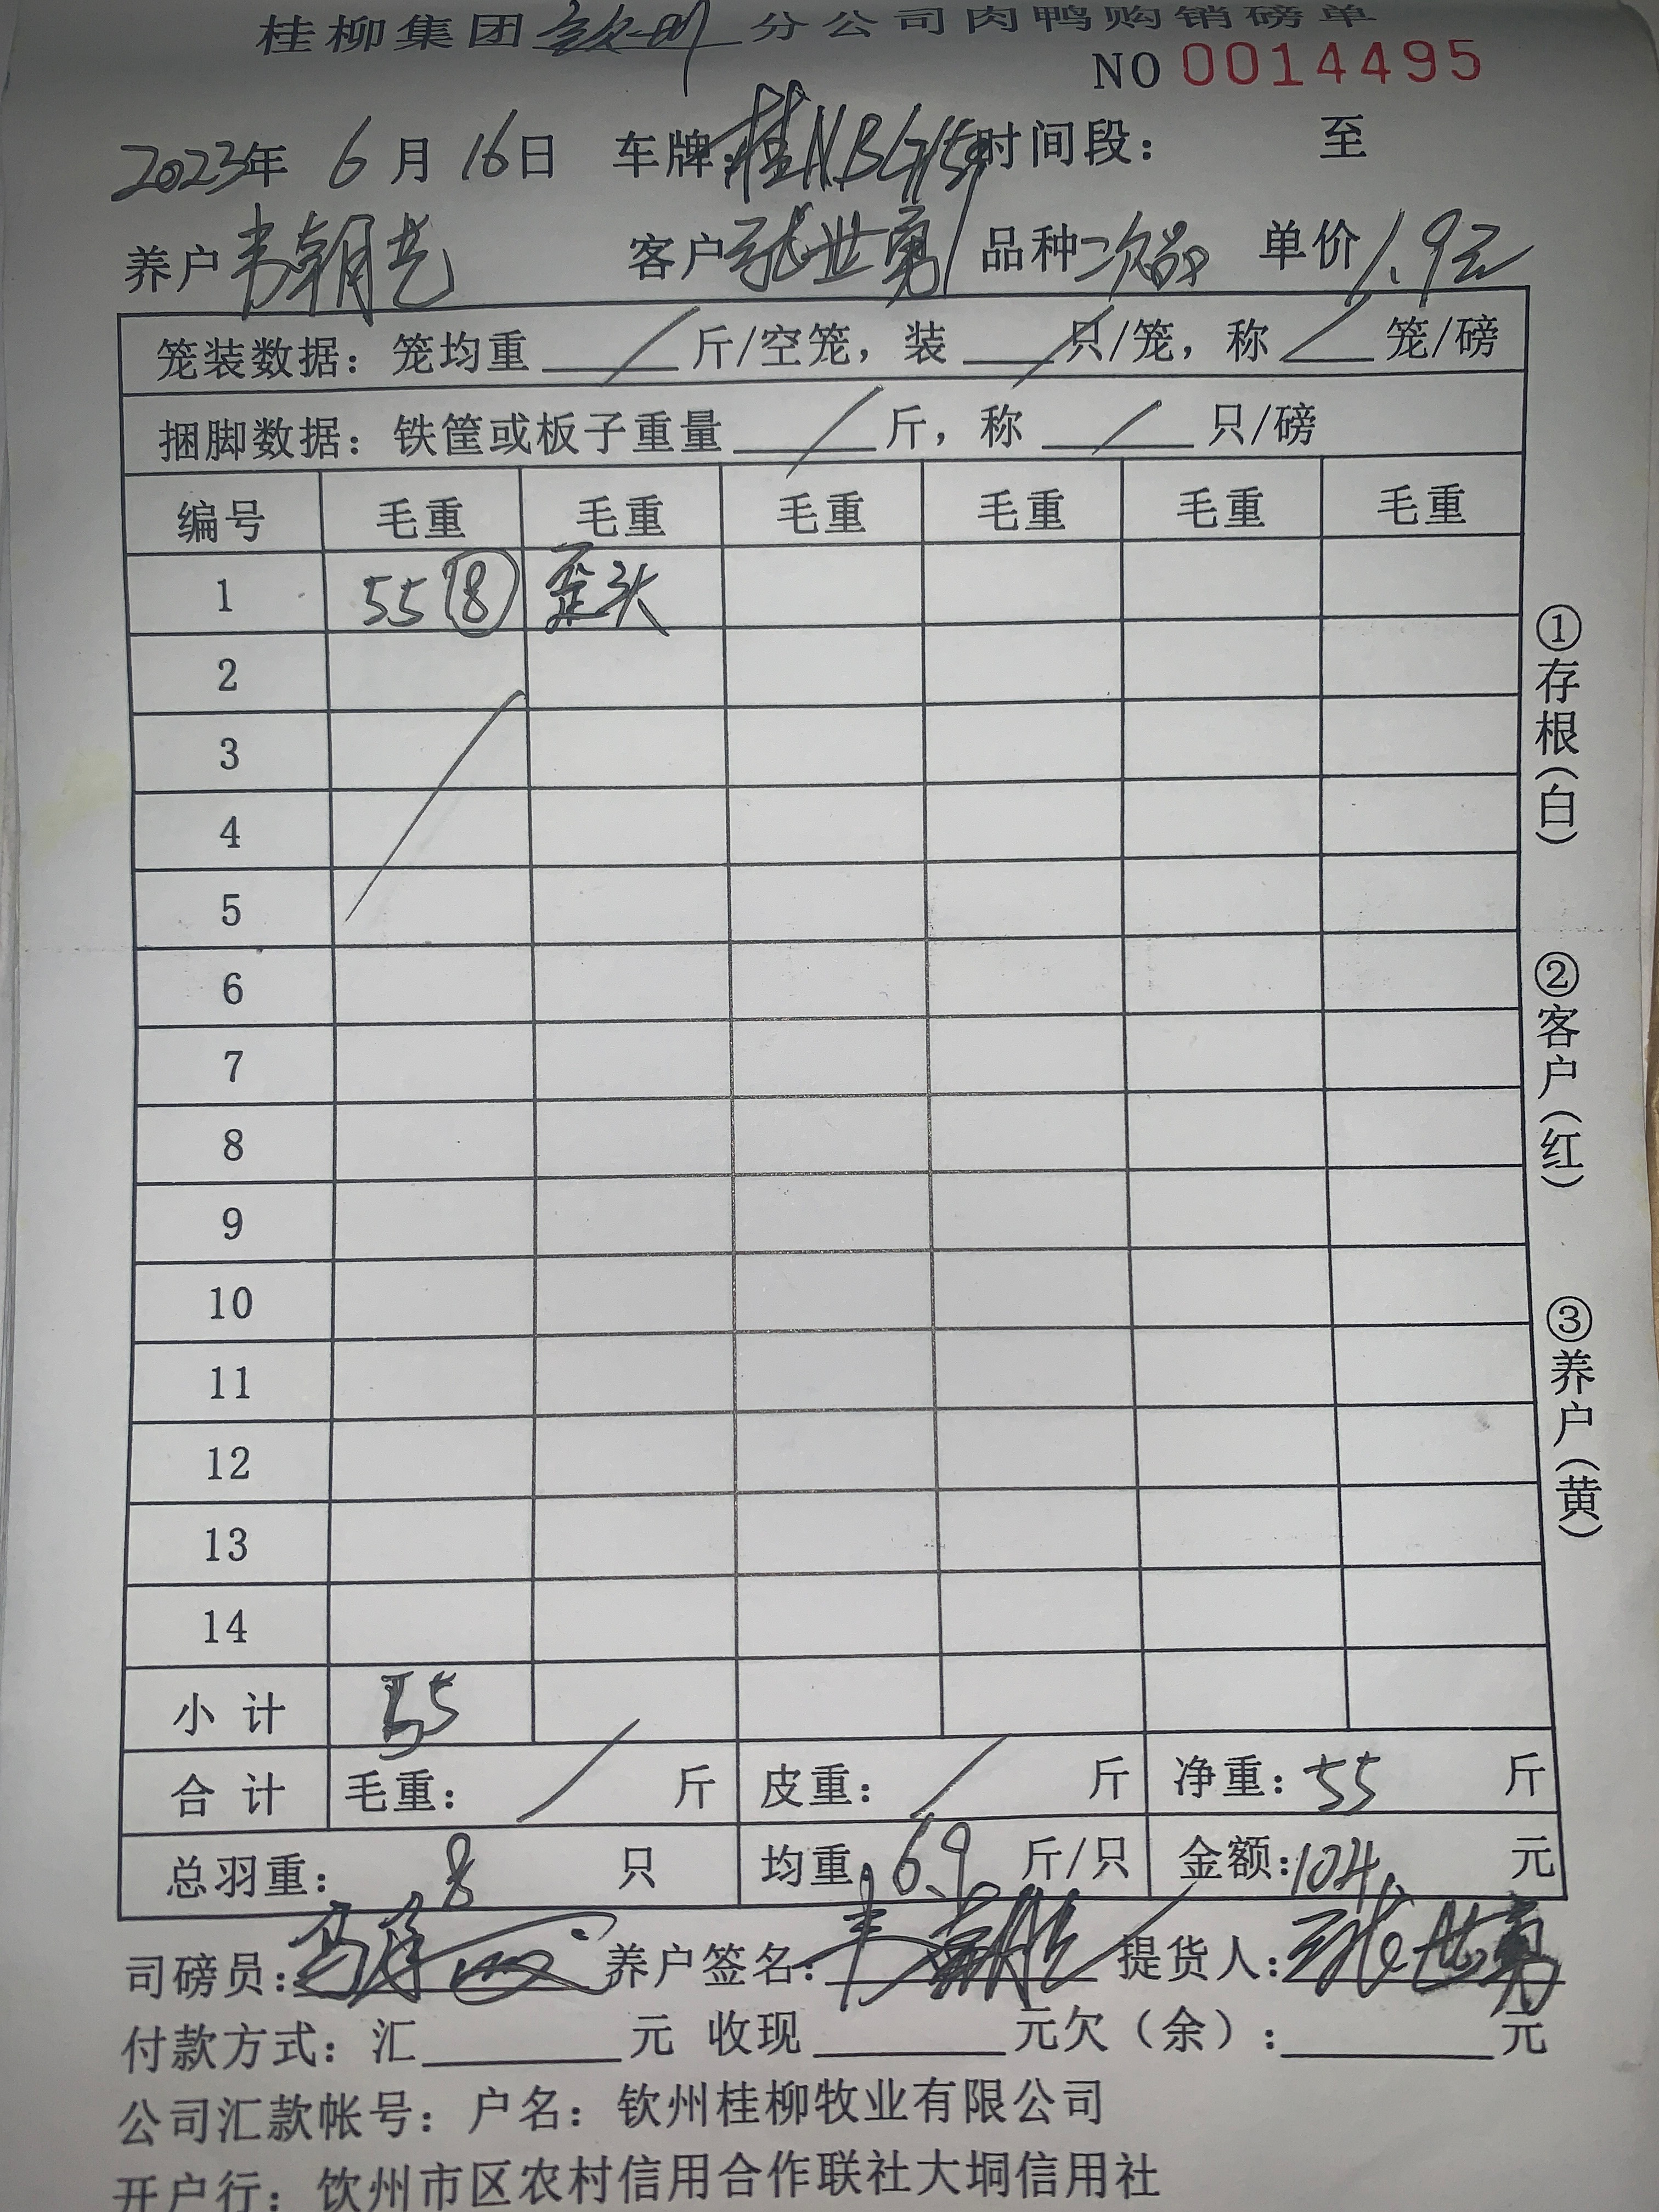 桂柳集团钦州分公司肉鸭购销磅单
NO 0014495
2023年 6月 16日 车牌:桂NBG159 时间段: 至
养户 韦朝光 客户 张世勇 品种 次品 单价 1.9元
笼装数据: 笼均重 / 斤/空笼, 装 / 只/笼, 称 / 笼/磅
捆脚数据: 铁筐或板子重量 / 斤, 称 / 只/磅
编号 毛重 毛重 毛重 毛重 毛重 毛重
1 55 ⑧ 歪头
2
3
4
5
6
7
8
9
10
11
12
13
14
小计 55
合计 毛重: / 斤 皮重: / 斤 净重: 55 斤
总羽重: 8 只 均重: 6.9 斤/只 金额: 104. 元
司磅员: 养户签名: 韦朝光 提货人: 张世勇
付款方式: 汇 元 收现 元欠(余): 元
公司汇款帐号: 户名: 钦州桂柳牧业有限公司
开户行: 钦州市区农村信用合作联社大垌信用社
①存根(白)
②客户(红)
③养户(黄)